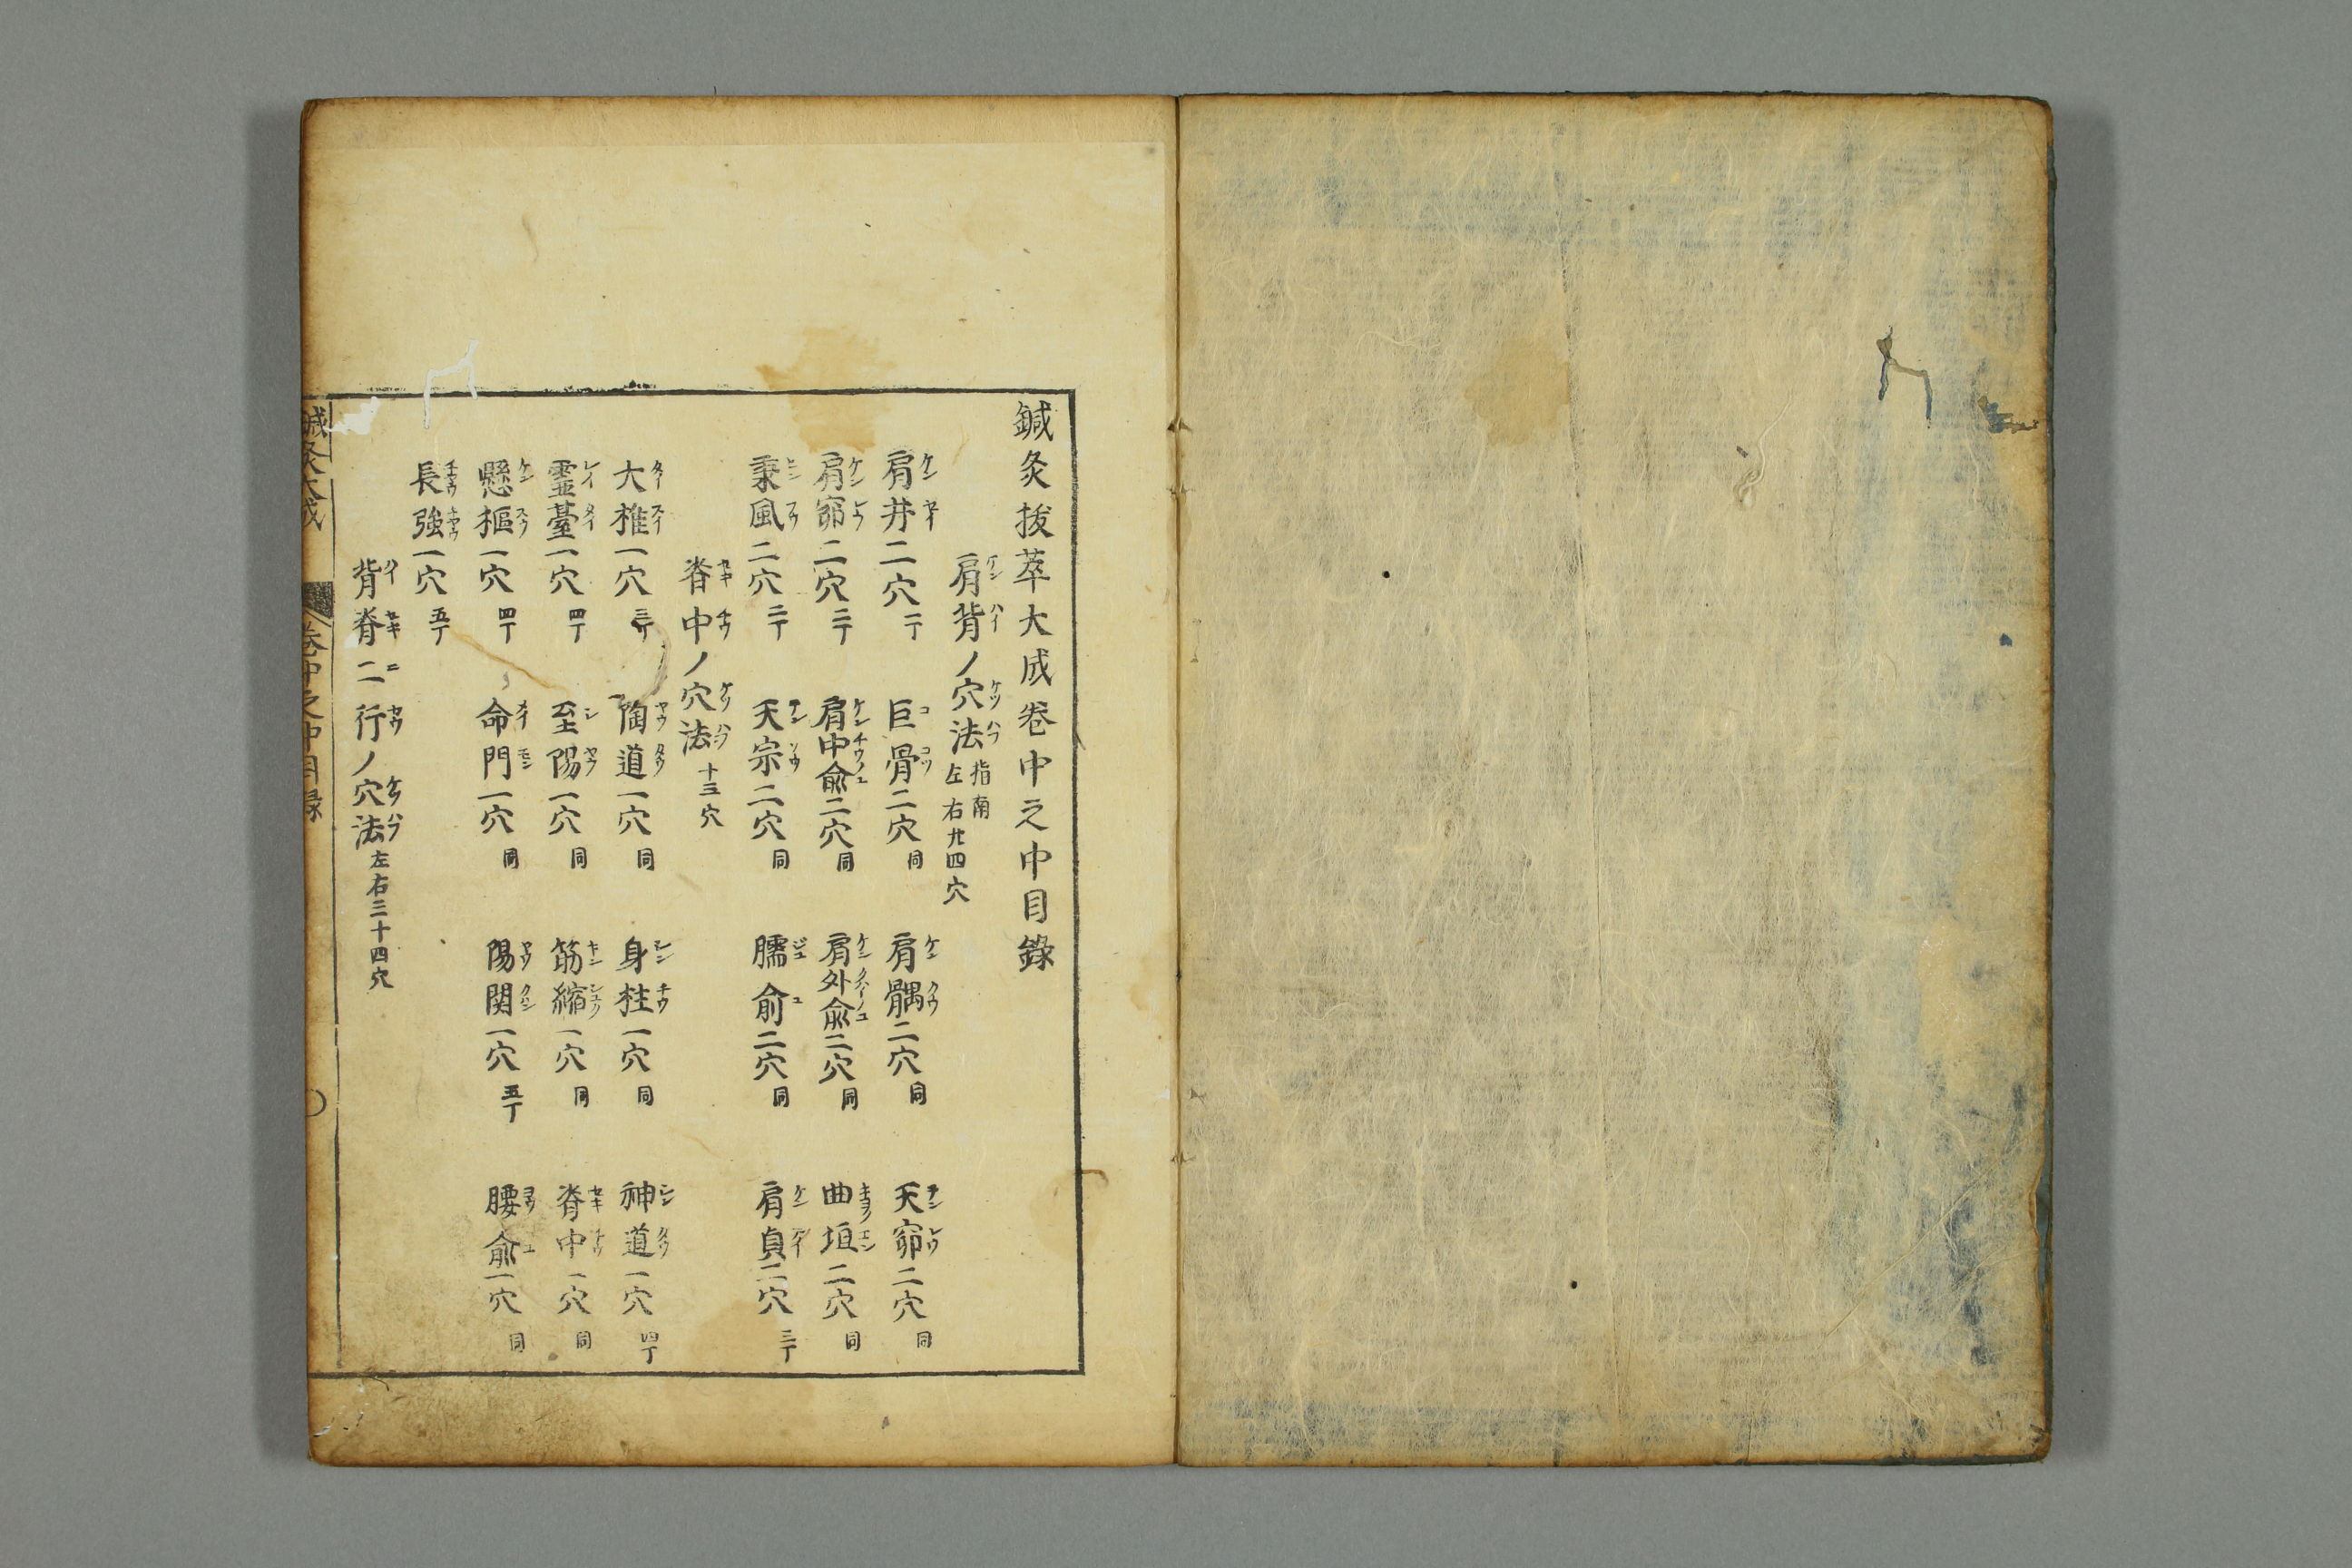 鍼灸拔萃大成卷中之中目錄
肩背ノ穴法 指南左右廾四穴
肩井二穴 二丁 巨骨二穴 同 肩髃二穴 同 天窌二穴 同
肩窌二穴 二丁 肩中兪二穴 同 肩外兪二穴 同 曲垣二穴 同
秉風二穴 二丁 天宗二穴 同 臑俞二穴 同 肩貞二穴 三丁
脊中ノ穴法 十三穴
大椎一穴 三丁 陶道一穴 同 身柱一穴 同 神道一穴 四丁
霊臺一穴 四丁 至陽一穴 同 筋縮一穴 同 脊中一穴 同
懸樞一穴 四丁 命門一穴 同 陽関一穴 五丁 腰兪一穴 同
長強一穴 五丁
背脊二行ノ穴法 左右三十四穴
鍼灸大成 卷中之中目录